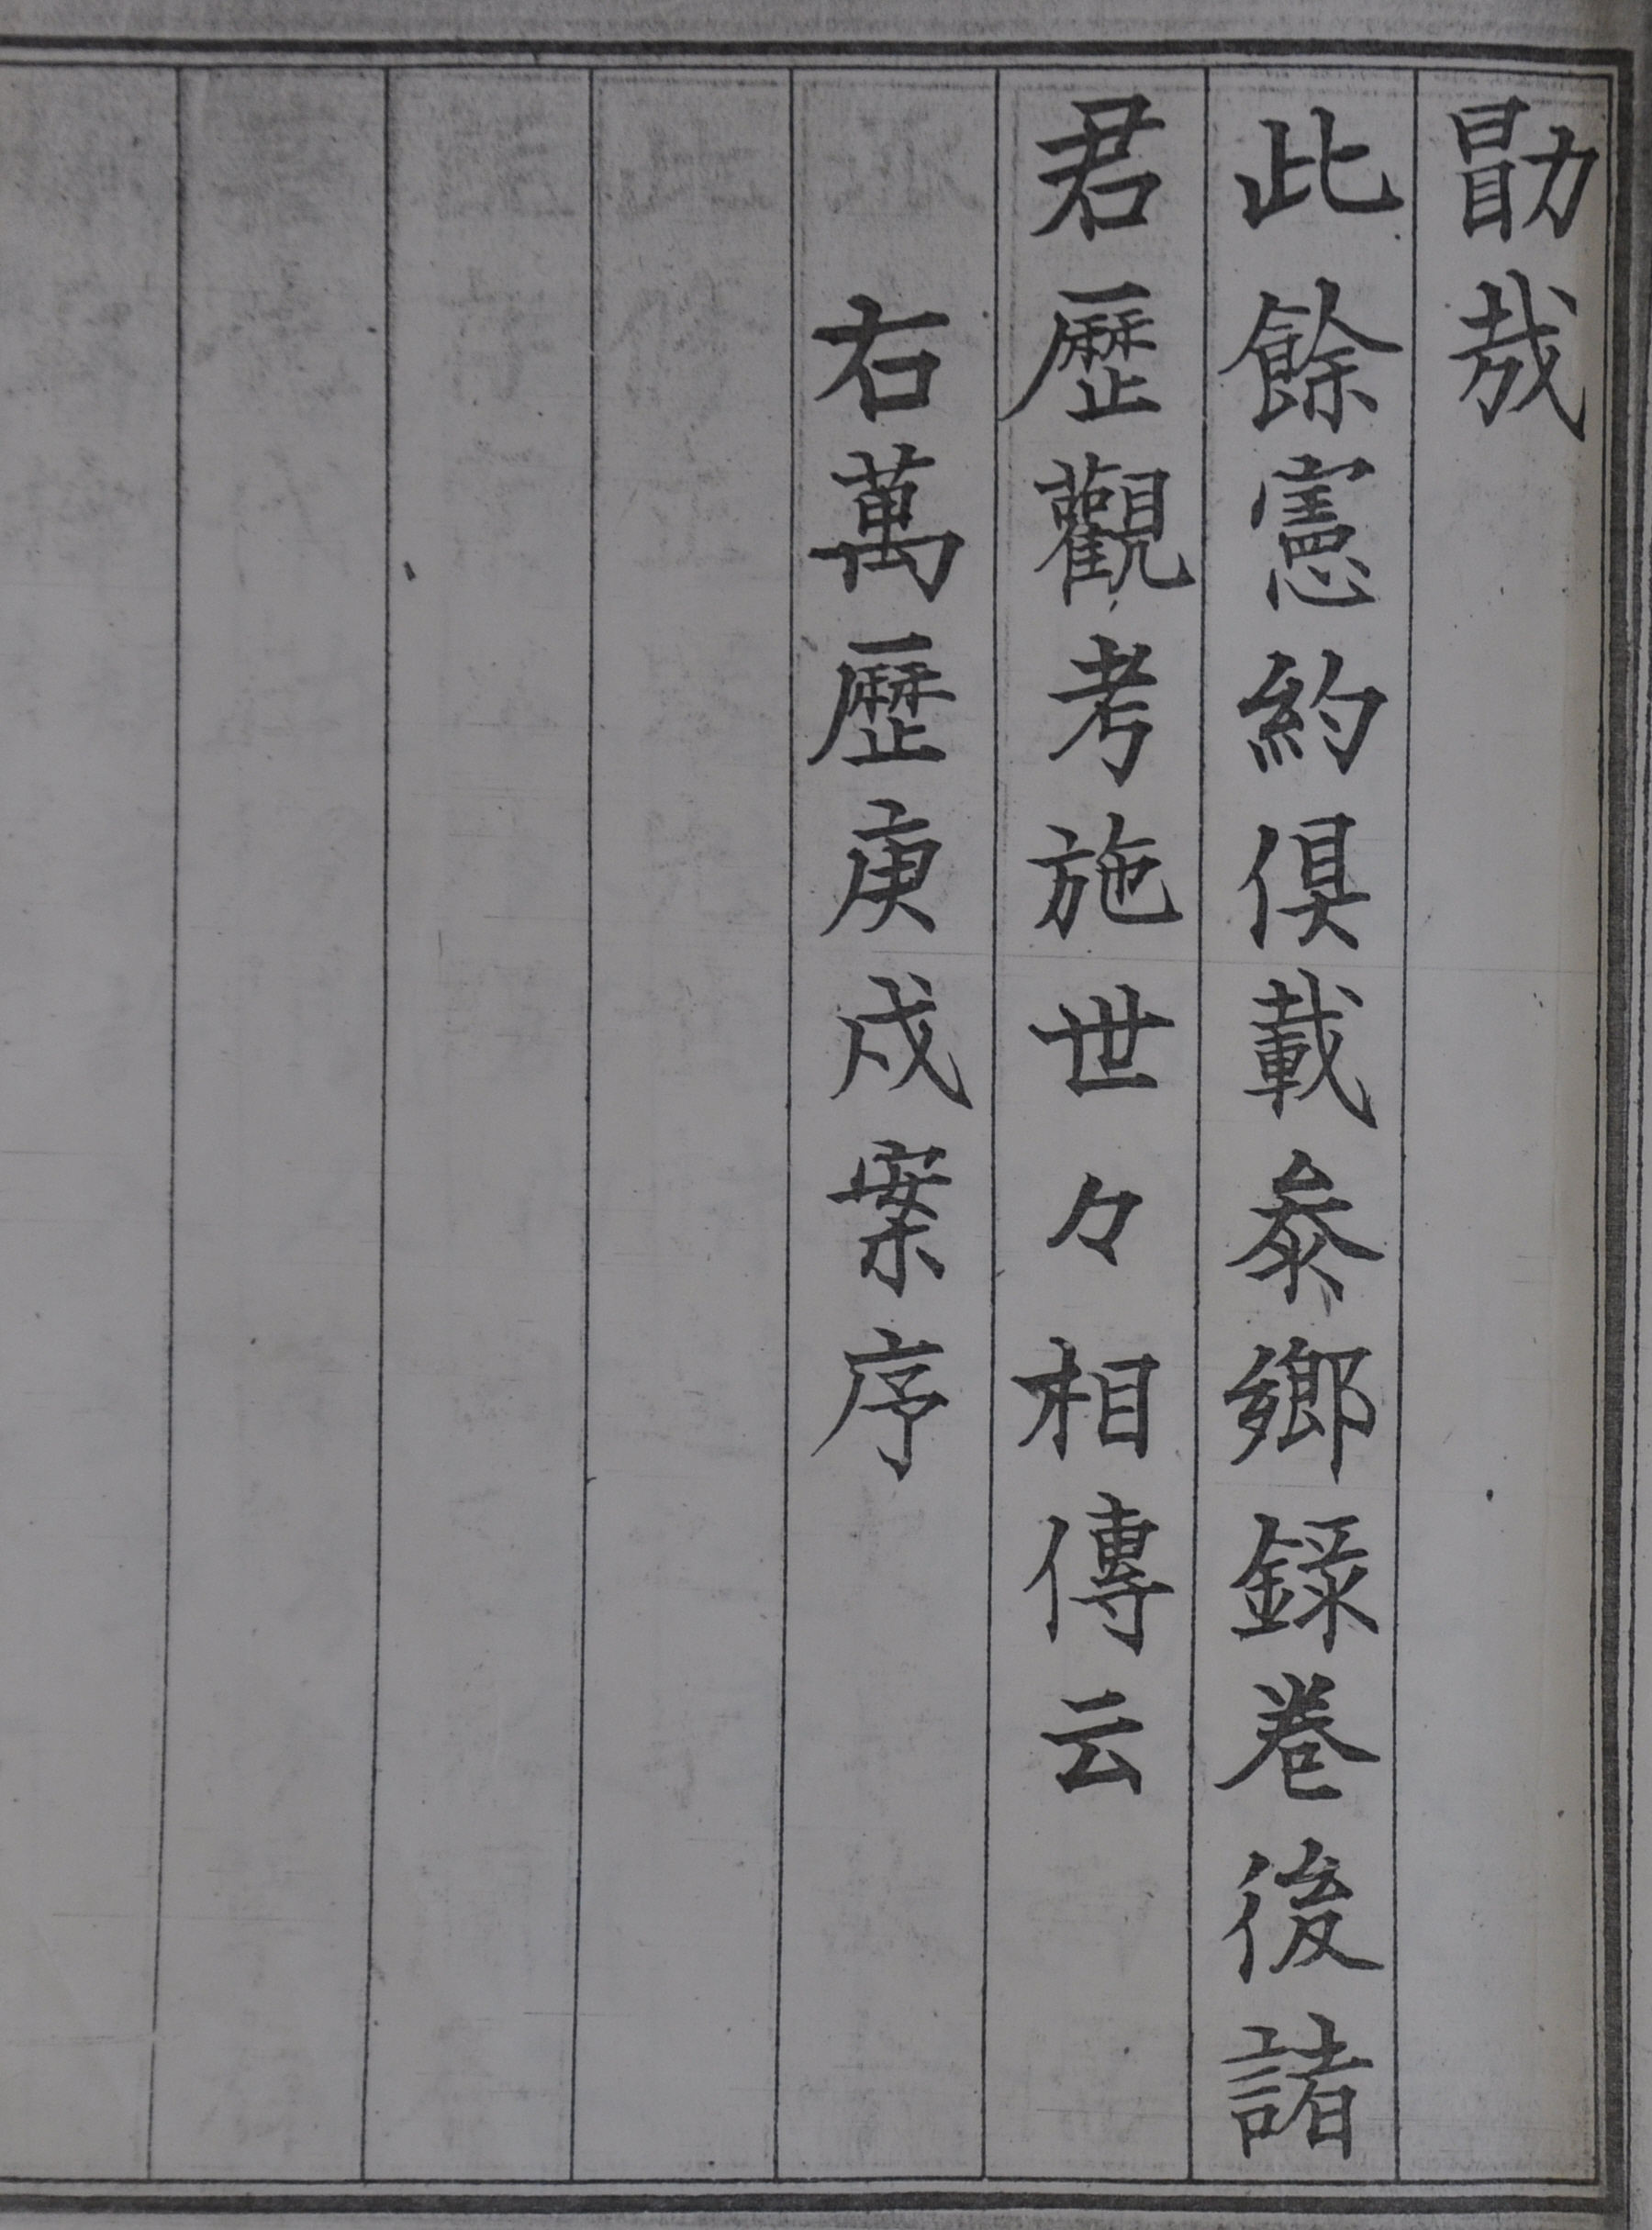 勖哉
此餘憲約俱載叅鄉錄卷後諸
君歷觀考施世々相傳云
右萬歷庚戌案序